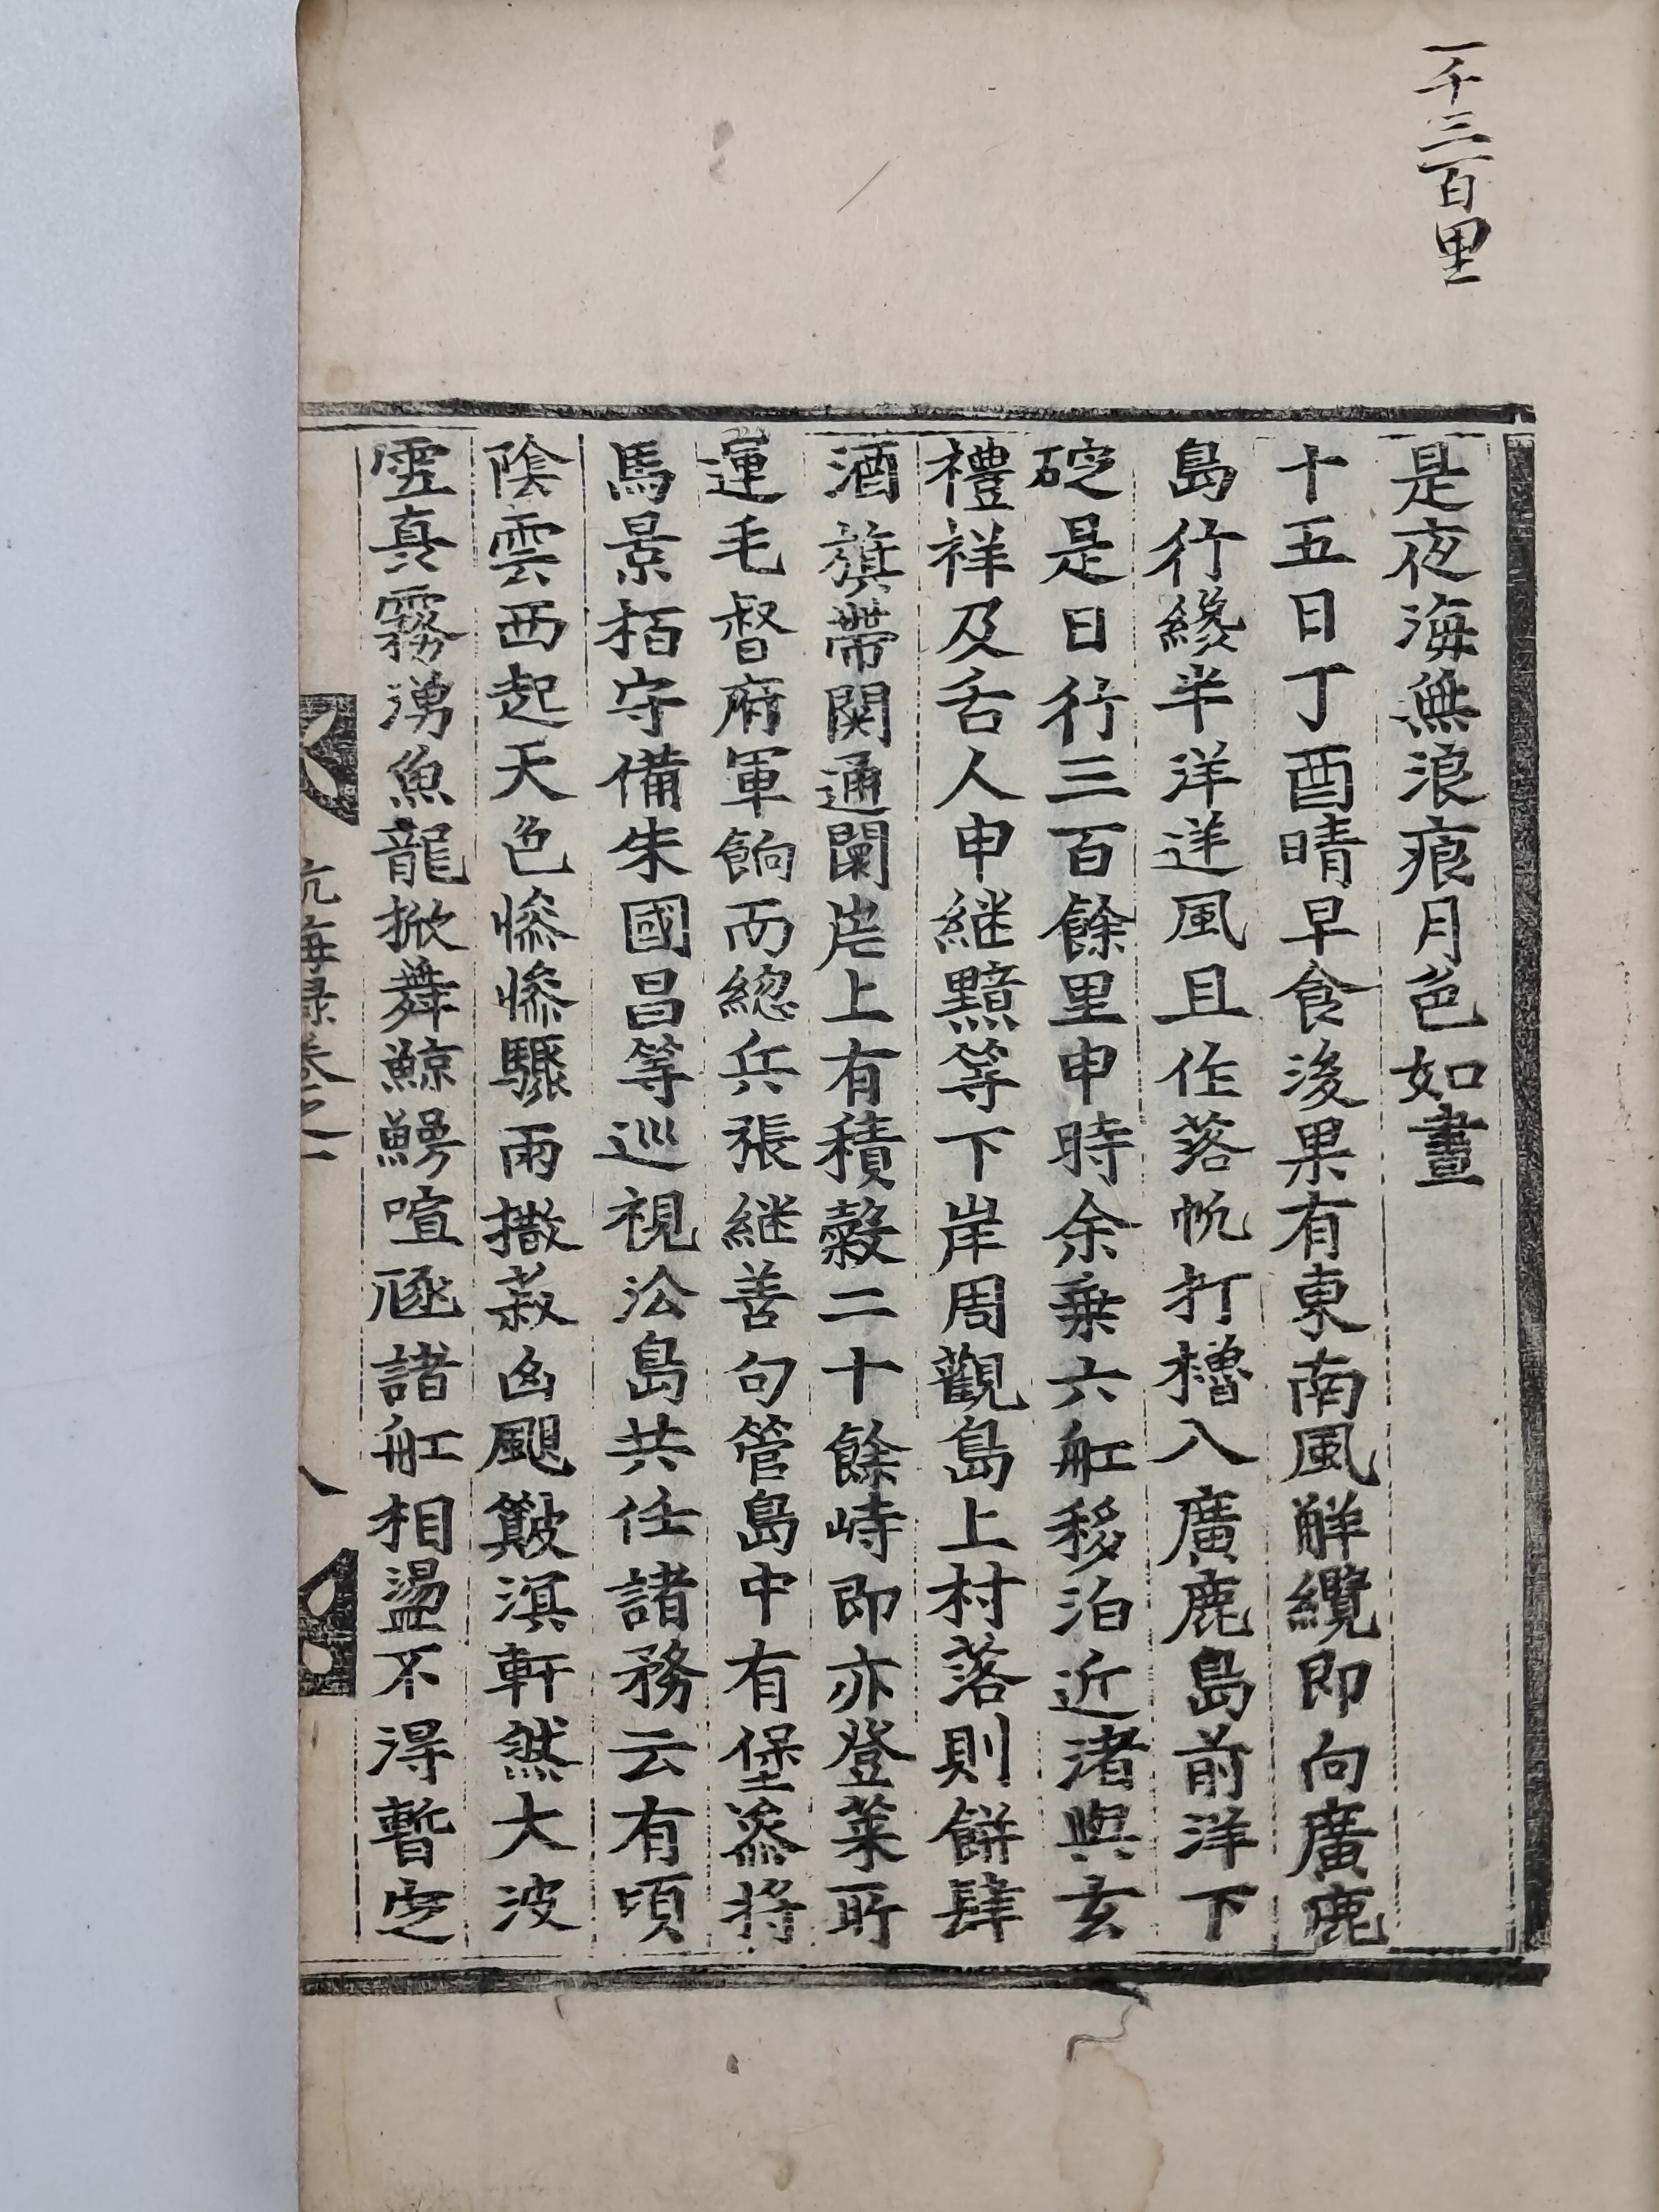 一千三百里
是夜海無浪痕月色如晝
十五日丁酉晴早食後果有東南風觧纜即向廣鹿
島行纔半洋逆風且作落帆打櫓入廣鹿島前洋下
碇是日行三百餘里申時余乗六舡移泊近渚與玄
禮祥及舌人申継黯等下岸周觀島上村落則餅肆
酒旗帶闤通闠岸上有積穀二十餘峙即亦登萊所
運毛督府軍餉而緫兵張継善句管島中有堡叅将
馬景栢守備朱國昌等巡視沿島共任諸務云有頃
陰雲西起天色慘慘驟雨撒菽凶颶簸溟軒然大波
真霧湧魚龍掀舞鯨鰐喧豗諸舡相盪不得暫定
杭海録卷之一
八